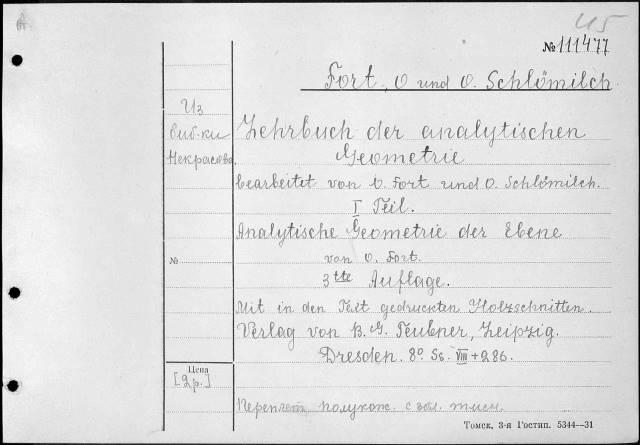 45
№ 111477
Fort, O und O. Schlömilch
Из
биб-ки
Некрасова.
Lehrbuch der analytischen
Geometrie
bearbeitet von O. Fort und O. Schlömilch.
I Teil.
Analytische Geometrie der Ebene
von O. Fort.
№
3tte Auflage.
Mit in den Text gedruckten Holzschnitten.
Verlag von B. G. Teubner, Leipzig.
Dresden. 8° Ss. VIII + 286.
Цена
[2р.]
Переплет полукож. с зол. тисн.
Томск, 3-я Гостип. 5344—31